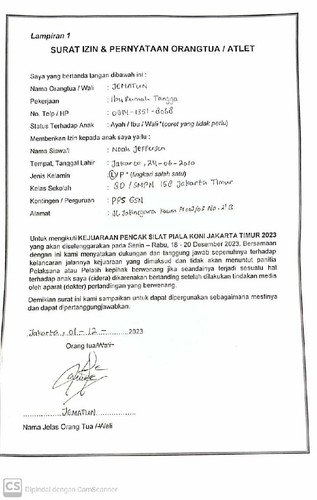 Lampiran 1
SURAT IZIN & PERNYATAAN ORANGTUA / ATLET
Saya yang bertanda tangan dibawah ini :
Nama Orangtua / Wali : JEMATUN
Pekerjaan : Ibu Rumah Tangga
No. Telp / HP :
Status Terhadap Anak : Ayah / Ibu / Wali *(coret yang tidak perlu)
Memberikan izin kepada anak saya yaitu :
Nama Siswa/i : Noah Jeffersen
Tempat, Tanggal Lahir : Jakarta, 24-06-2010
Jenis Kelamin : L/P * (lingkari salah satu)
Kelas Sekolah : 8D / SMPN 158 Jakarta Timur
Kontingen / Perguruan : PPS GSN
Alamat : Jl.
Untuk mengikuti KEJUARAAN PENCAK SILAT PIALA KONI JAKARTA TIMUR 2023
yang akan diselenggarakan pada Senin – Rabu, 18 - 20 Desember 2023. Bersamaan
dengan ini kami menyatakan dukungan dan tanggung jawab sepenuhnya terhadap
kelancaran jalannya kejuaraan yang dimaksud dan tidak akan menuntut panitia
Pelaksana atau Pelatih kepihak berwenang jika seandainya terjadi sesuatu hal
terhadap anak saya (cidera) dikarenakan bertanding setelah dilakukan tindakan medis
oleh aparat (dokter) pertandingan yang berwenang.
Demikian surat ini kami sampaikan untuk dapat dipergunakan sebagaimana mestinya
dan dapat dipertanggungjawabkan.
Jakarta, 01 - 12 - 2023
Orang tua/Wali
JEMATUN
Nama Jelas Orang Tua /Wali
CS Dipindai dengan CamScanner